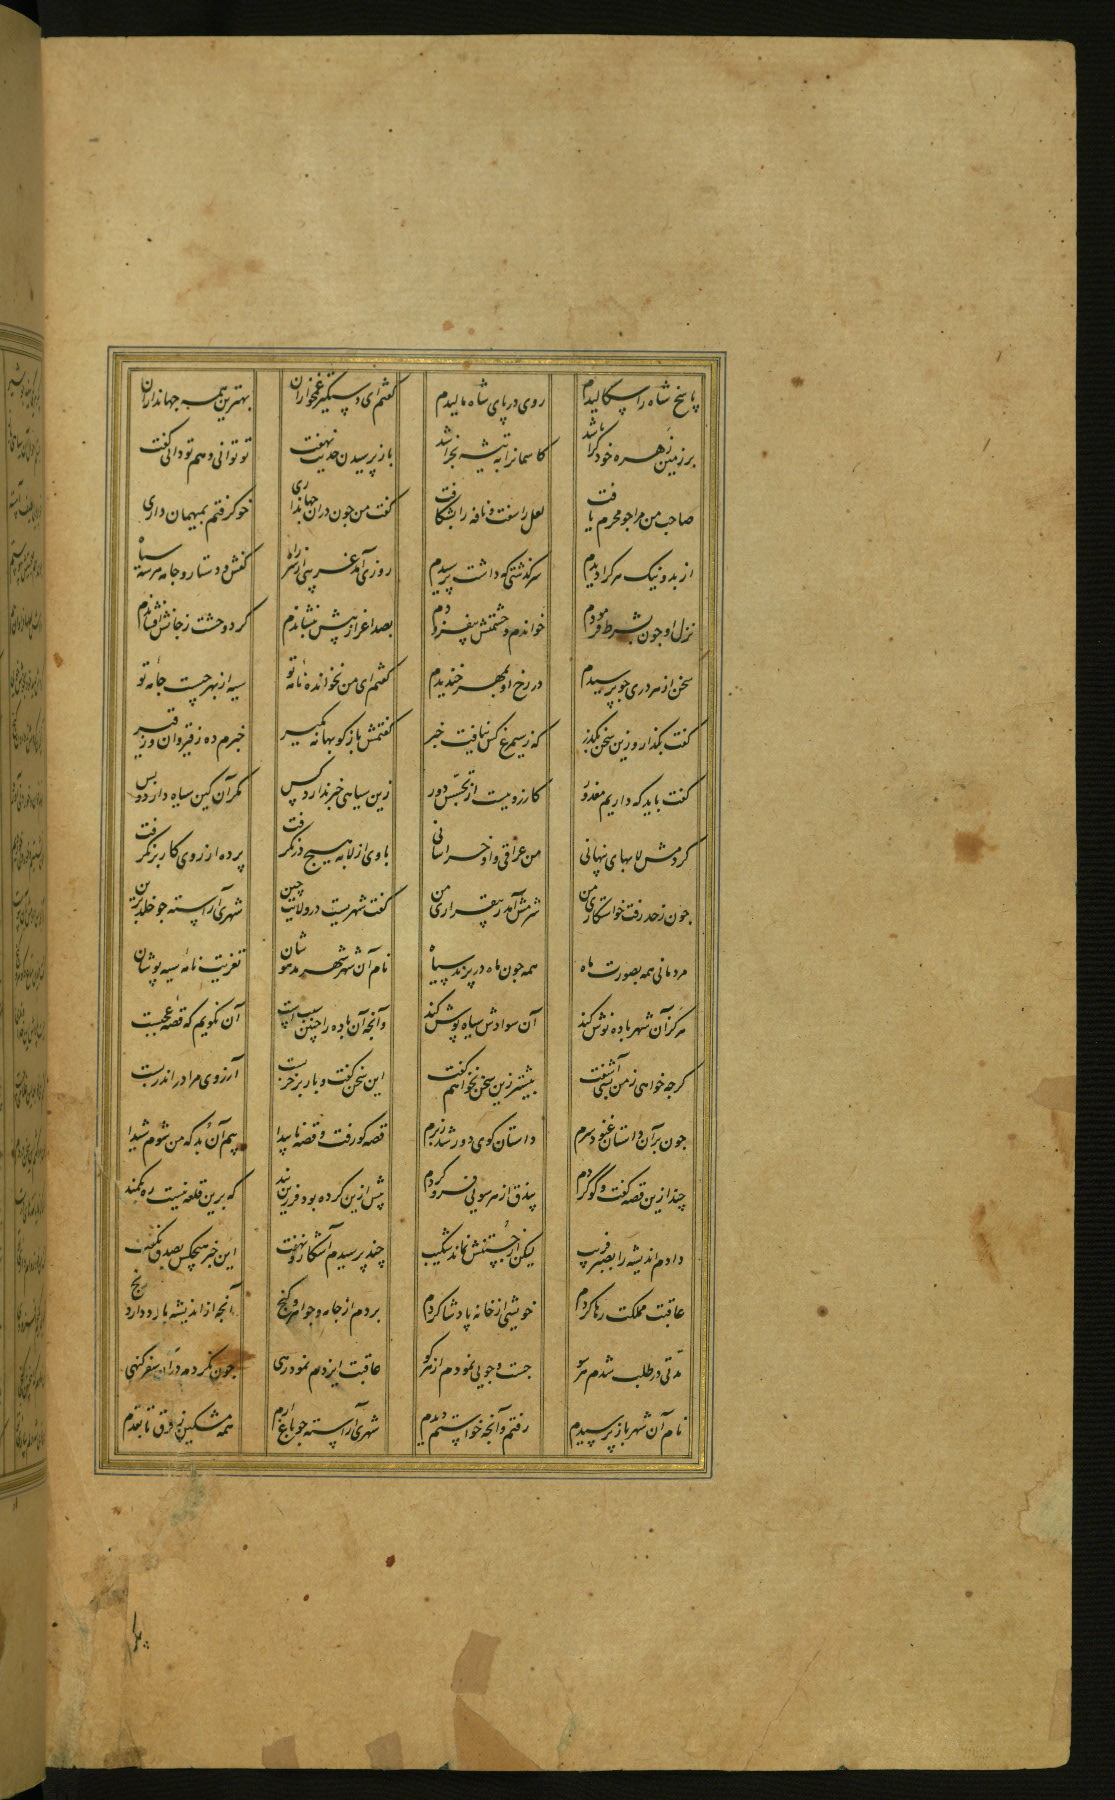 پاسخ شاه را سگالیدم روی در پای شاه مالیدم گفتم ای دستگیر غمخواران بهترین همه جهانداران
بر زمین زهره خود کرا باشد کاسمانرا به تیشه بخراشد باز پرسیدن حدیث نهفت تو توانی و هم تو دانی گفت
صاحب من مرا جو محرم یافت لعل را سفت و نافه را بشکافت گفت من جون دران جهانداری خو گرفتم بمیهمان داری
از بد و نیک هر کرا دیدم سرگذشتی که داشت پرسیدم روزی آمد غریبی از سر راه کفش و دستار و جامه هر سه سیاه
نزل او جون بشرط فرمودم خواندم و حشمتش بیفزودم گفتم ای من نخوانده نامه تو سیه از بهر چیست جامه تو
سخن از هر دری جو پرسیدم در رخ او بمهر خندیدم
گفت بگذار و زین سخن بگذر که ز سیمرغ کس نیافت خبر گفتمش باز کو بهانه مگیر خبرم ده ز قیروان و ز قیر
گفت باید که داریم معذور کارزوییست از تجسس دور زین سیاهی خبر ندارد کس مگر آن کین سیاه دارد و بس
کردمش لابهای پنهانی من عراقی و او خراسانی با وی از لابه هیچ درنگرفت پرده از روی کار برنگرفت
جون ز حد رفت خواستکاری من شرمش آمد ز بیقراری من گفت شهریست در ولایت چین شهری آراسته جو خلد برین
مردمانی همه بصورت ماه همه جون ماه در پرند سیاه نام آن شهر شهر مدهوشان تعزیت خانه سیه پوشان
هر که زآن شهر باده نوش کند آن سوادش سیاه پوش کند وآنچه آن باده را چنین سبب است آن نگویم که قصه عجبست
کرجه خواهی ز من بنشی آشفت بیشتر زین سخن نخواهم گفت این سخن گفت و بار بر خر بست آرزوی مرا در اندر بست
جون بر آن داستان غنود سرم داستان کوی دور شد ز برم قصه کو رفت و قصه ناپیدا بیم آن بد که من شوم شیدا
چند ازین قصه گفت و گو کردم بیذق از هر سویی فرو کردم بیش ازین کرده بود فرزین بند که برین قلعه نیست ره بکمند
دادم اندیشه را بصبر فریب لیکن از جستنش نماند شکیب چند پرسیدم آشکار و نهفت این خبر هیچکس بصدق نگفت
عاقبت مملکت رها کردم خویشی از خانه پادشا کردم بردم از جامه و جواهر و گنج آنچه از اندیشه باز دارد رنج
مدتی در طلب شدم هر سو جست و جویی نمودم از هر کو عاقبت ایزدم نمود رهی جون نکردم در آن سفر گنهی
نام آن شهر باز پرسیدم رفتم و آنچه خواستم دیدم شهری آراسته جو باغ ارم همه مشکین